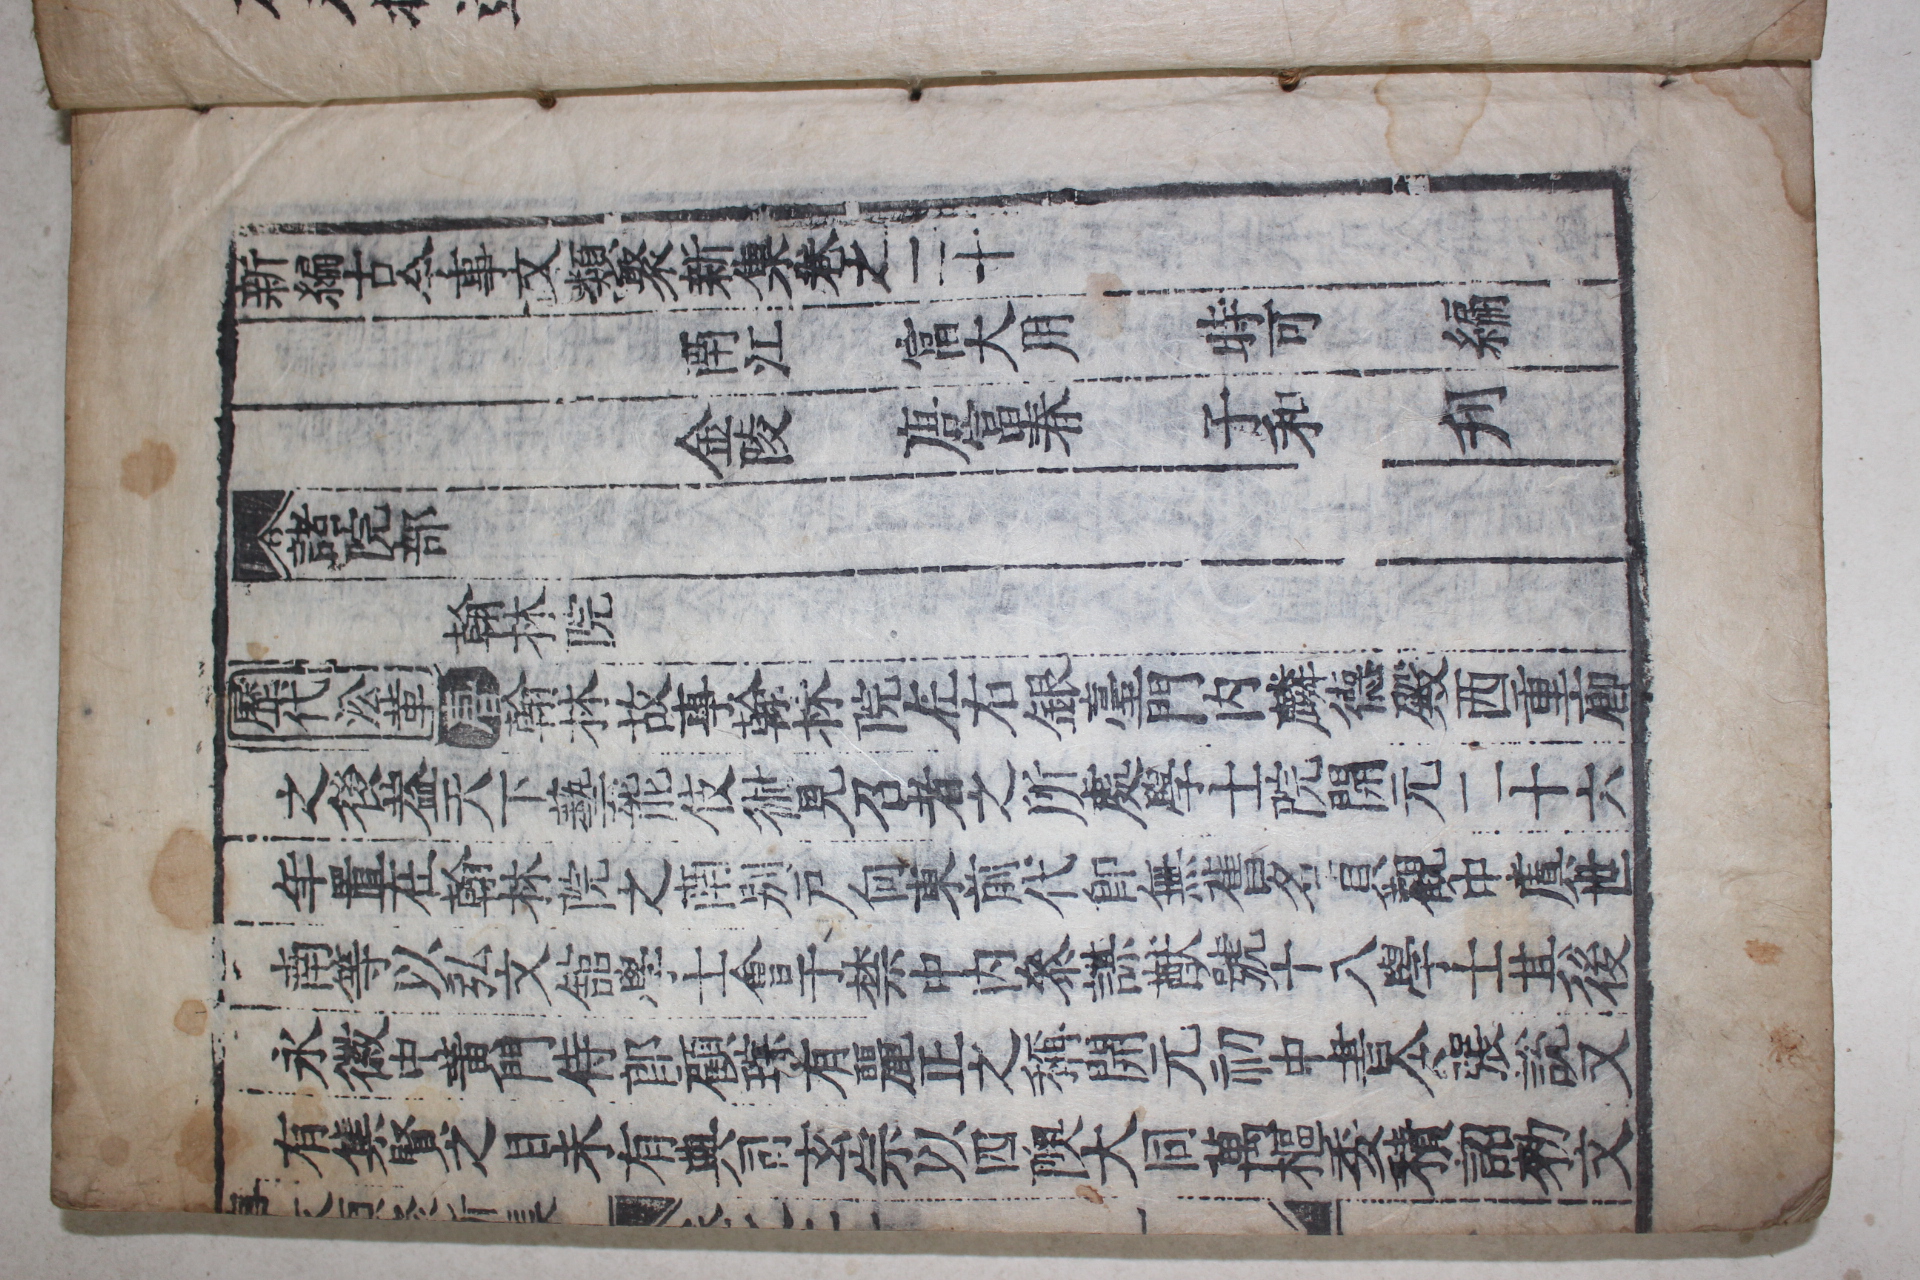 新編古今事文類聚新集卷之二十
南江 富大用 時可 編
金陵 唐富春 子和 刋
諸院部
翰林院
歷代㳂革 唐 翰林故事翰林院在右銀臺門内麟德殿西重廊
之後蓋天下藝能伎術見召者之所處學士院開元二十六
年置在翰林院之南別戸向東前代即無舊名貞觀中虞世
南等以弘文館學士會于禁中内參謀猷號十八學士其後
永徽中黄門侍郎顧琮有麗正之稱開元初中書令張說又
有集賢之目未有典司玄宗以四隩大同萬樞委積詔勑文